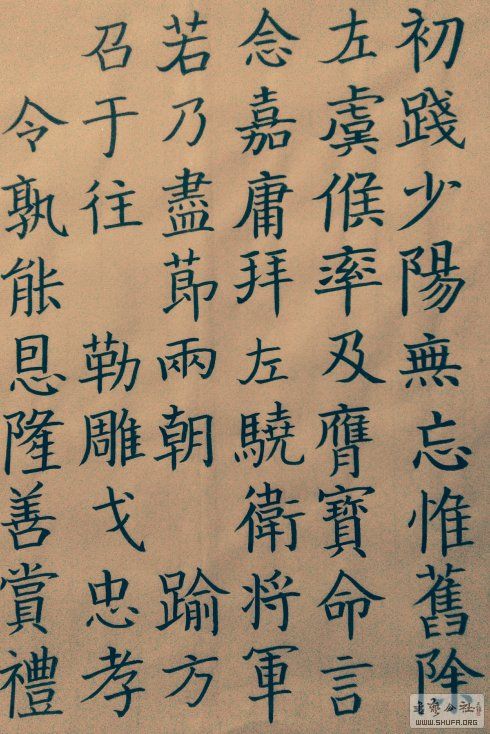 初踐少陽無忘惟舊除
左虞候率及膺寶命言
念嘉庸拜左驍衛将軍
若乃盡莭兩朝 踰方
召于往 勒雕戈忠孝
令孰能恩隆善賞禮
书艺公社
WWW.SHUFA.ORG